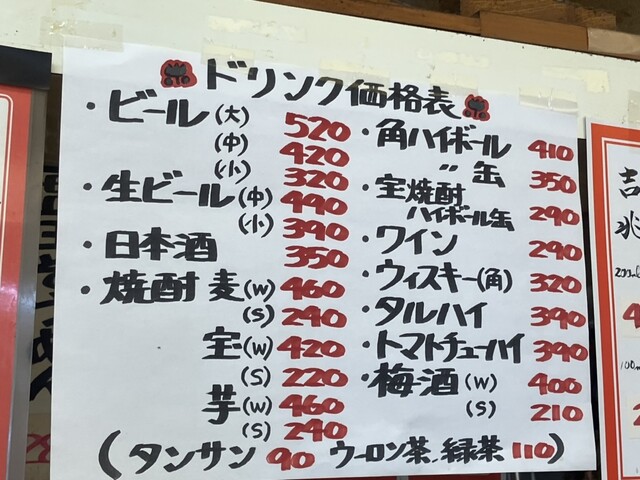 ドリンク価格表
・ビール(大) 520
(中) 420
(小) 320
・生ビール(中) 490
(小) 390
・日本酒 350
・焼酎 麦(W) 460
(S) 240
宝(W) 420
(S) 220
芋(W) 460
(S) 240
・角ハイボール 410
〃 缶 350
・宝焼酎
ハイボール缶 290
・ワイン 290
・ウィスキー(角) 320
・タルハイ 390
・トマトチューハイ 390
・梅酒(W) 400
(S) 210
(タンサン 90 ウーロン茶、緑茶 110)
吉
兆